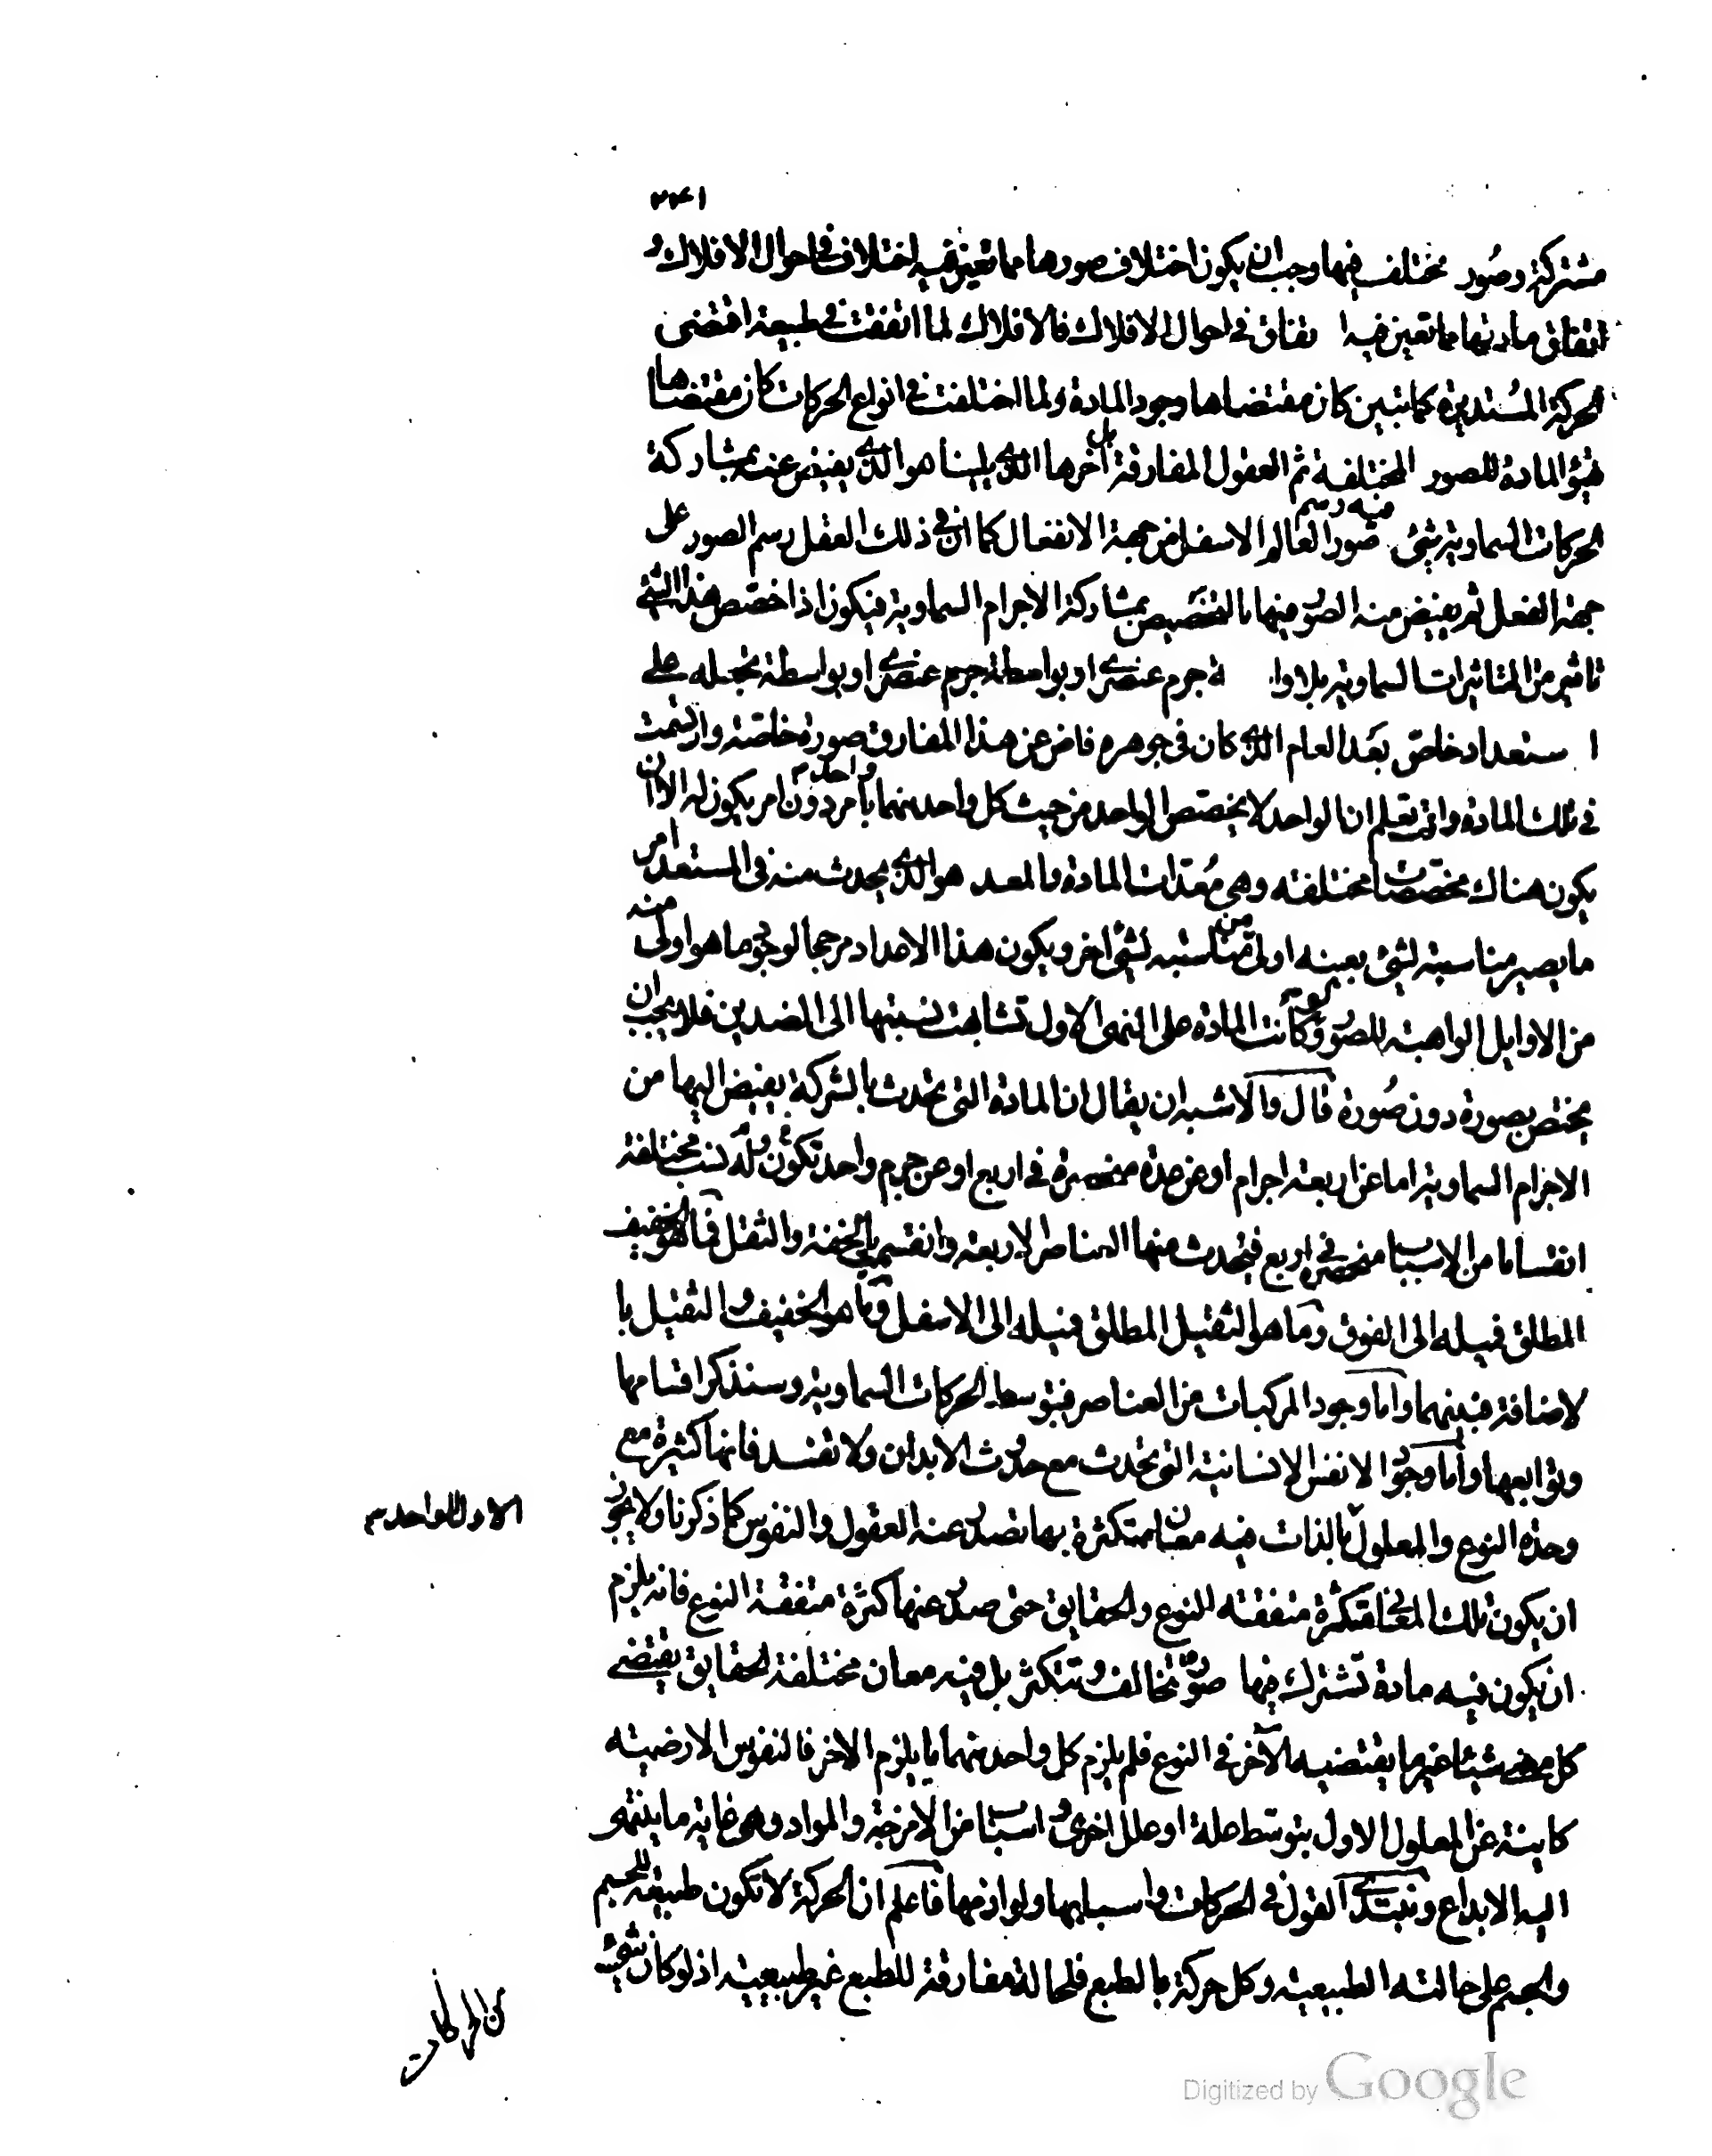 ٣٤١
مشتركة وصور مختلف فيها وجب ان يكون اختلاف صورها مما تعين فيه اختلاف في احوال الافلاك و
اتفاق مادتها مما تعين فيه ا تفاق في احوال الافلاك فالافلاك لما اتفقت في طبيعة اقتضى
الحركة المستديرة كما تبين كان مقتضاها وجود المادة ولما اختلفت في انواع الحركات كان مقتضاها
تهيؤ المادة للصور المختلفة ثم العقول المفارقة بل اخرها الذي يلينا هو الذي يفيض عنه بمشاركة
الحركات السماوية شئ فيه رسم صور العالم الاسفل من جهة الانفعال كما ان في ذلك العقل رسم الصور على
جهة الفعل ثم يفيض منه الصور فيها بالتخصيص بمشاركة الاجرام السماوية فيكون اذا خصص هذا الشئ
تاثير من التاثيرات السماوية بلا وا طة جرم عنصري او بواسطة جرم عنصري او بواسطة تجعله على
ا ستعداد خاص بعد العام الذي كان في جوهره فاض عن هذا المفارق صورة خاصة وارتسمت
في تلك المادة وانت تعلم ان الواحد لا يخصص الواحد من حيث كل واحد منهما واحد بامر دون امر يكون له الا ان
يكون هناك مخصصات مختلفة وهى معدات المادة والمعد هو الذي يحدث منه في المستعد امر
ما يصير مناسبته لشئ بعينه اولى من مناسبته لشئ اخر ويكون هذا الاعداد مرجحا لوجود ما هو اولى منه
من الاوايل الواهبة للصور ولو كانت المادة على التهئ الاول تشابهت نسبتها الى الضدين فلا يجب ان
يختص بصورة دون صورة قال والاشبه ان يقال ان المادة التى تحدث بالشركة يفيض اليها من
الاجرام السماوية اما عن اربعة اجرام او عن عدة منحصرة في اربع او عن جرم واحد تكون له نسب مختلفة
انقساما من الاسباب منحصرة في اربع فيحدث منها العناصر الاربعة وانقسمت بالخفة والثقل فما هو الخفيف
المطلق فميله الى الفوق وما هو الثقيل المطلق فميله الى الاسفل وما هو الخفيف والثقيل با
لاضافة فبينهما واما وجود المركبات من العناصر فبتوسط الحركات السماوية وسنذكر اقسامها
وتوابعها واما وجود الانفس الانسانية التى تحدث مع حدوث الابدان ولا تفسد فانها كثيرة مع
وحدة النوع والمعلول بالذات فيه معان متكثرة بها تصدر عنه العقول والنفوس كما ذكرنا ولا يجوز
الاول الواحد
ان يكون تلك المعانى متكثرة متفقة النوع والحقايق حتى صدر عنها كثرة متفقة النوع فانه يلزم
ان يكون فيه مادة تشترك فيها صور تتخالف و تتكثر بل فيه معان مختلفة الحقايق يقتضى
كل معنى شيئا غير ما يقتضيه الآخر في النوع فلم يلزم كل واحد منهما ما يلزم الاخر فالنفوس الارضية
كاينة عن المعلول الاول بتوسط علة او علل اخرى و اسباب من الامزجة والمواد وهى غاية ما ينتهى
اليه الابداع ونبتدى القول في الحركات واسبابها ولوازمها فاعلم ان الحركة لا تكون طبيعية للجسم
والجسم على حالته الطبيعية وكل حركة بالطبع فلحالة مفارقة للطبع غير طبيعية اذ لو كان شئ
من الحركات